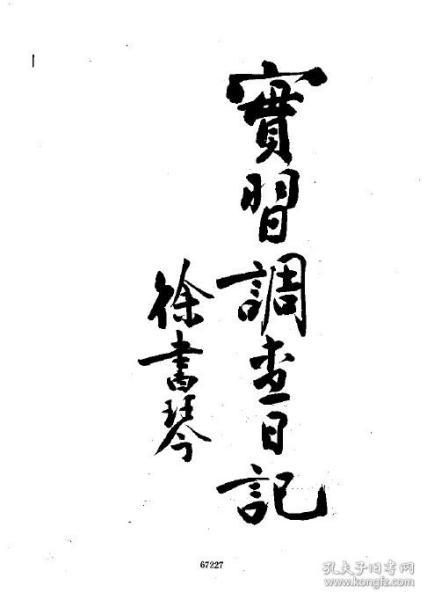 實習調查日記
徐書琴
67227
孔夫子旧书网
www.kongfz.com